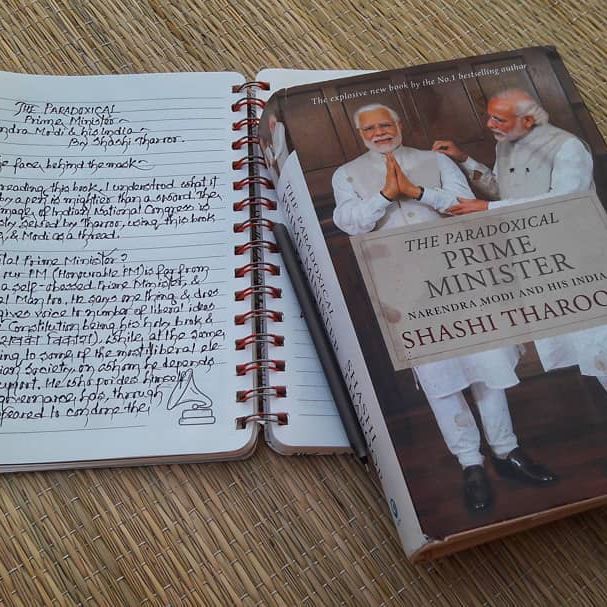 THE PARADOXICAL
Prime Minister~
ndra Modi & his India~
By Shashi Tharoor.
e face behind the mask~
reading this book, I understood what it
a pen is mightier than a sword. The
image of Indian National Congress is
by Tharoor, using this book
& Modi as a thread.
tal Prime Minister?
our PM (Honourable PM) is far from
a self-obsessed Prime Minister, &
al Mantra. He says one thing & does
gives voice to number of liberal ideas
Constitution being his holy book &
While at the same
ing to some of the most illiberal ele-
ian Society, on whom he depends
upport. He who prides himself
governance, has, through
peared to condone the
The explosive new book by the No.1 bestselling author
THE PARADOXICAL
PRIME
MINISTER
NARENDRA MODI AND HIS INDIA
SHASHI THAROO
THE PARADOXICAL
SHASHI